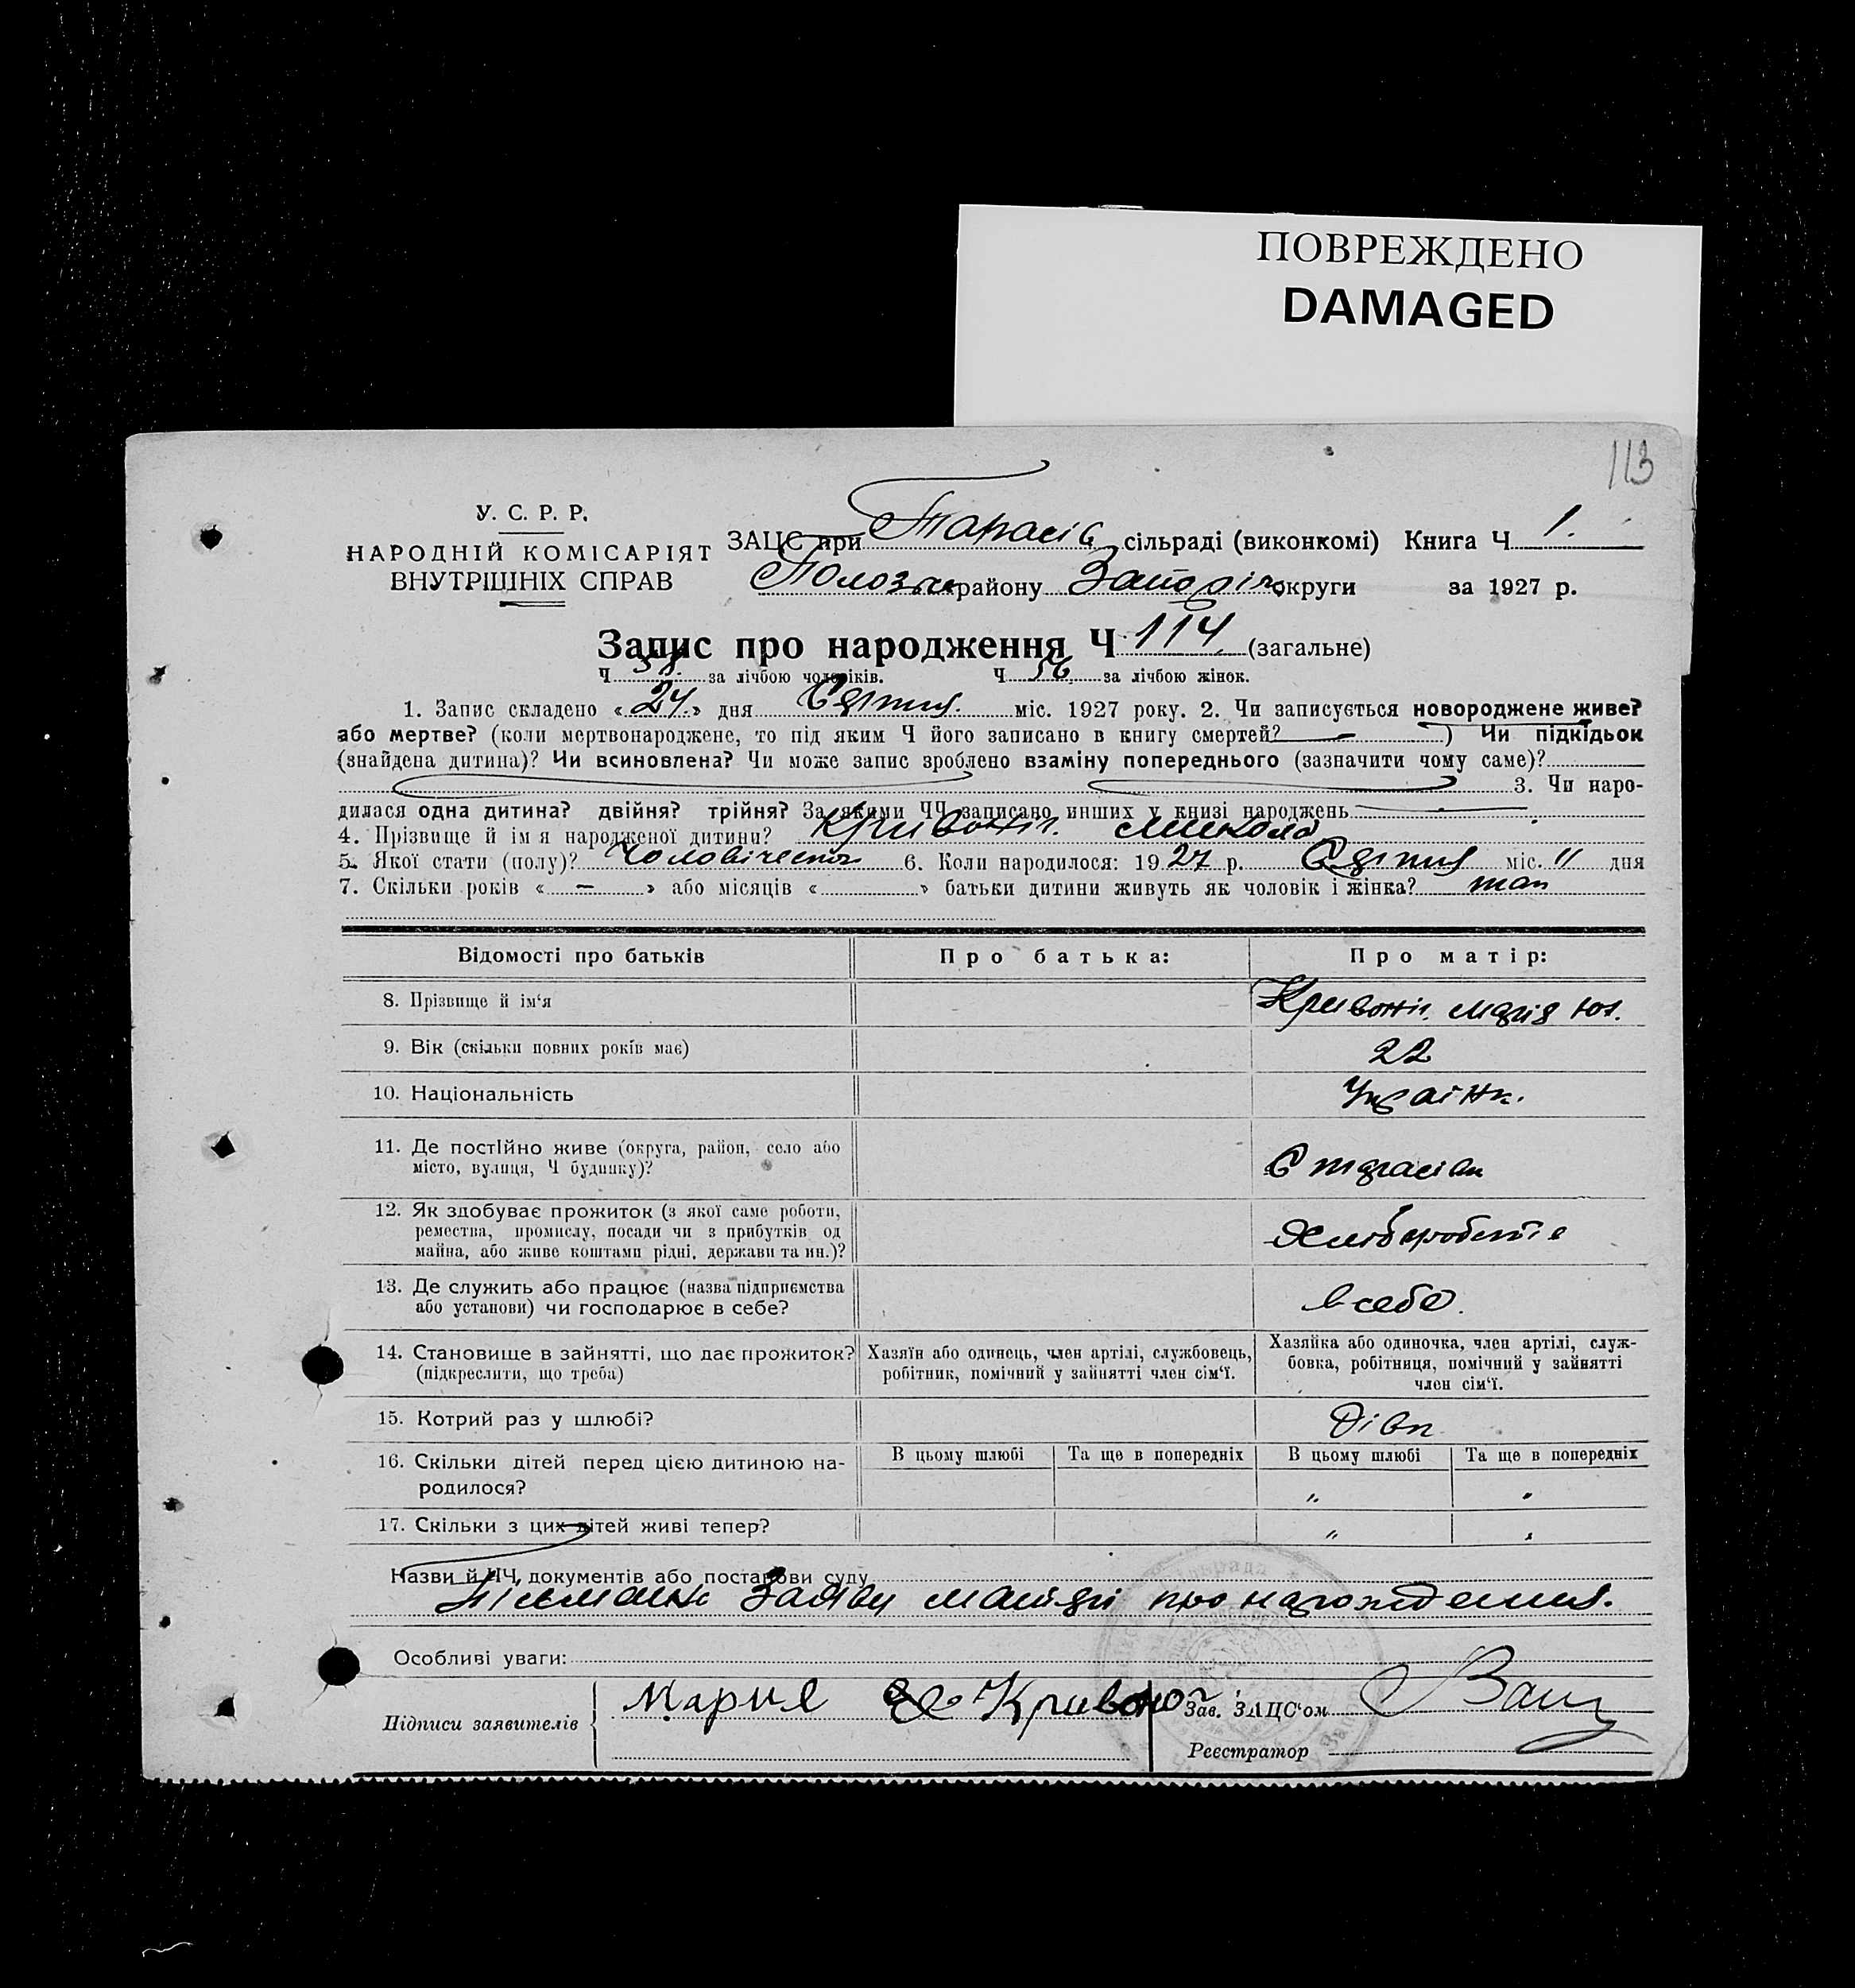 ПОВРЕЖДЕНО
DAMAGED
113
У. С. Р. Р.
НАРОДНІЙ КОМІСАРІЯТ
ВНУТРІШНІХ СПРАВ
ЗАЦС при Тарасів сільраді (виконкомі) Книга Ч 1.
району округи за 1927 р.
Запис про народження Ч 114 (загальне)
Ч 58. за лічбою чоловіків. Ч 56. за лічбою жінок.
1. Запис складено «24.» дня міс. 1927 року. 2. Чи записується новороджене живе?
або мертве? (коли мертвонароджене, то під яким Ч його записано в книгу смертей? — ) Чи підкідьок
(знайдена дитина)? Чи всиновлена? Чи може запис зроблено взаміну попереднього (зазначити чому саме)?
3. Чи наро-
дилася одна дитина? двійня? трійня? За якими ЧЧ записано инших у книзі народжень
4. Прізвище й ім я народженої дитини? Микола
5. Якої стати (полу)? 6. Коли народилося: 1927 р. міс. 11 дня
7. Скільки років « — » або місяців « » батьки дитини живуть як чоловік і жінка?
Відомості про батьків
Про батька:
Про матір:
8. Прізвище й ім‘я
Кривоніс. Марія Юх.
9. Вік (скільки повних років має)
22
10. Національність
Українк.
11. Де постійно живе (округа, район, село або
місто, вулиця, Ч будинку)?
12. Як здобуває прожиток (з якої саме роботи,
ремества, промислу, посади чи з прибутків од
майна, або живе коштами рідні, держави та ин.)?
13. Де служить або працює (назва підприємства
або установи) чи господарює в себе?
в себе.
14. Становище в зайнятті, що дає прожиток?
(підкреслити, що треба)
Хазяїн або одинець, член артілі, службовець,
робітник, помічний у зайнятті член сім‘ї.
Хазяйка або одиночка, член артілі, служ-
бовка, робітниця, помічний у зайнятті
член сім‘ї.
15. Котрий раз у шлюбі?
16. Скільки дітей перед цією дитиною на-
родилося?
В цьому шлюбі
Та ще в попередніх
В цьому шлюбі
Та ще в попередніх
17. Скільки з цих дітей живі тепер?
Назви й ЧЧ документів або постанови суду
Заяву матері про
Особливі уваги:
Підписи заявителів
Мария Кривоно
Зав. ЗАЦС‘ом
Реєстратор